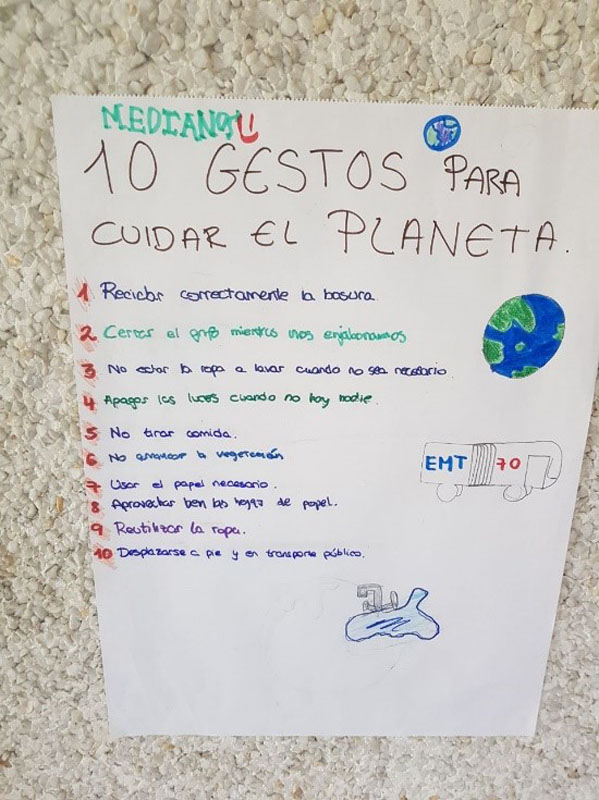 MEDIANOS
10 GESTOS PARA
CUIDAR EL PLANETA.
1 Reciclar correctamente la basura.
2 Cerrar el grifo mientras nos enjabonamos
3 No echar la ropa a lavar cuando no sea necesario.
4 Apagar las luces cuando no hay nadie.
5 No tirar comida.
6 No arrancar la vegetación
7 Usar el papel necesario.
8 Aprovechar bien las hojas de papel.
9 Reutilizar la ropa.
10 Desplazarse a pie y en transporte público.
EMT 70